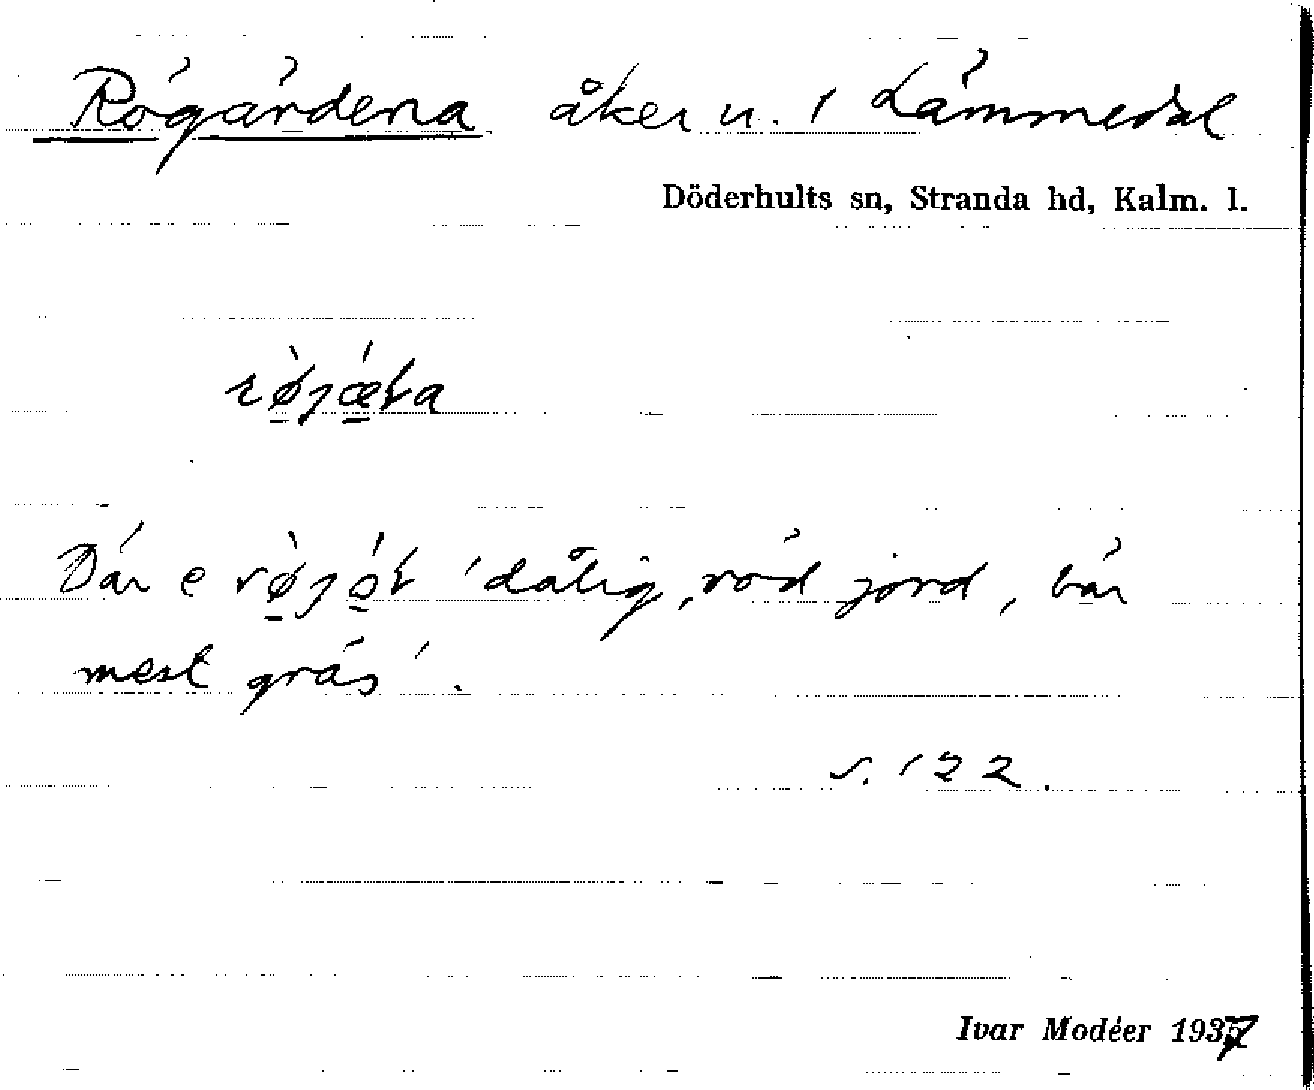 Rögärdena åker u. 1 Lämmedal
Döderhults sn, Stranda hd, Kalm. l.
rø̀jǽta
Där e rø̀jót 'dålig, röd jord, bär
mest gräs'.
s. 122.
Ivar Modéer 1937